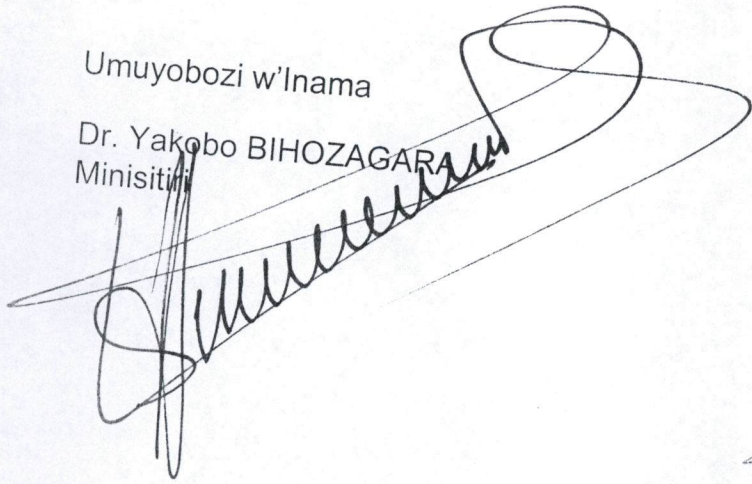 Umuyobozi w'Inama
Dr. Yakobo BIHOZAGARA
Minisitiri